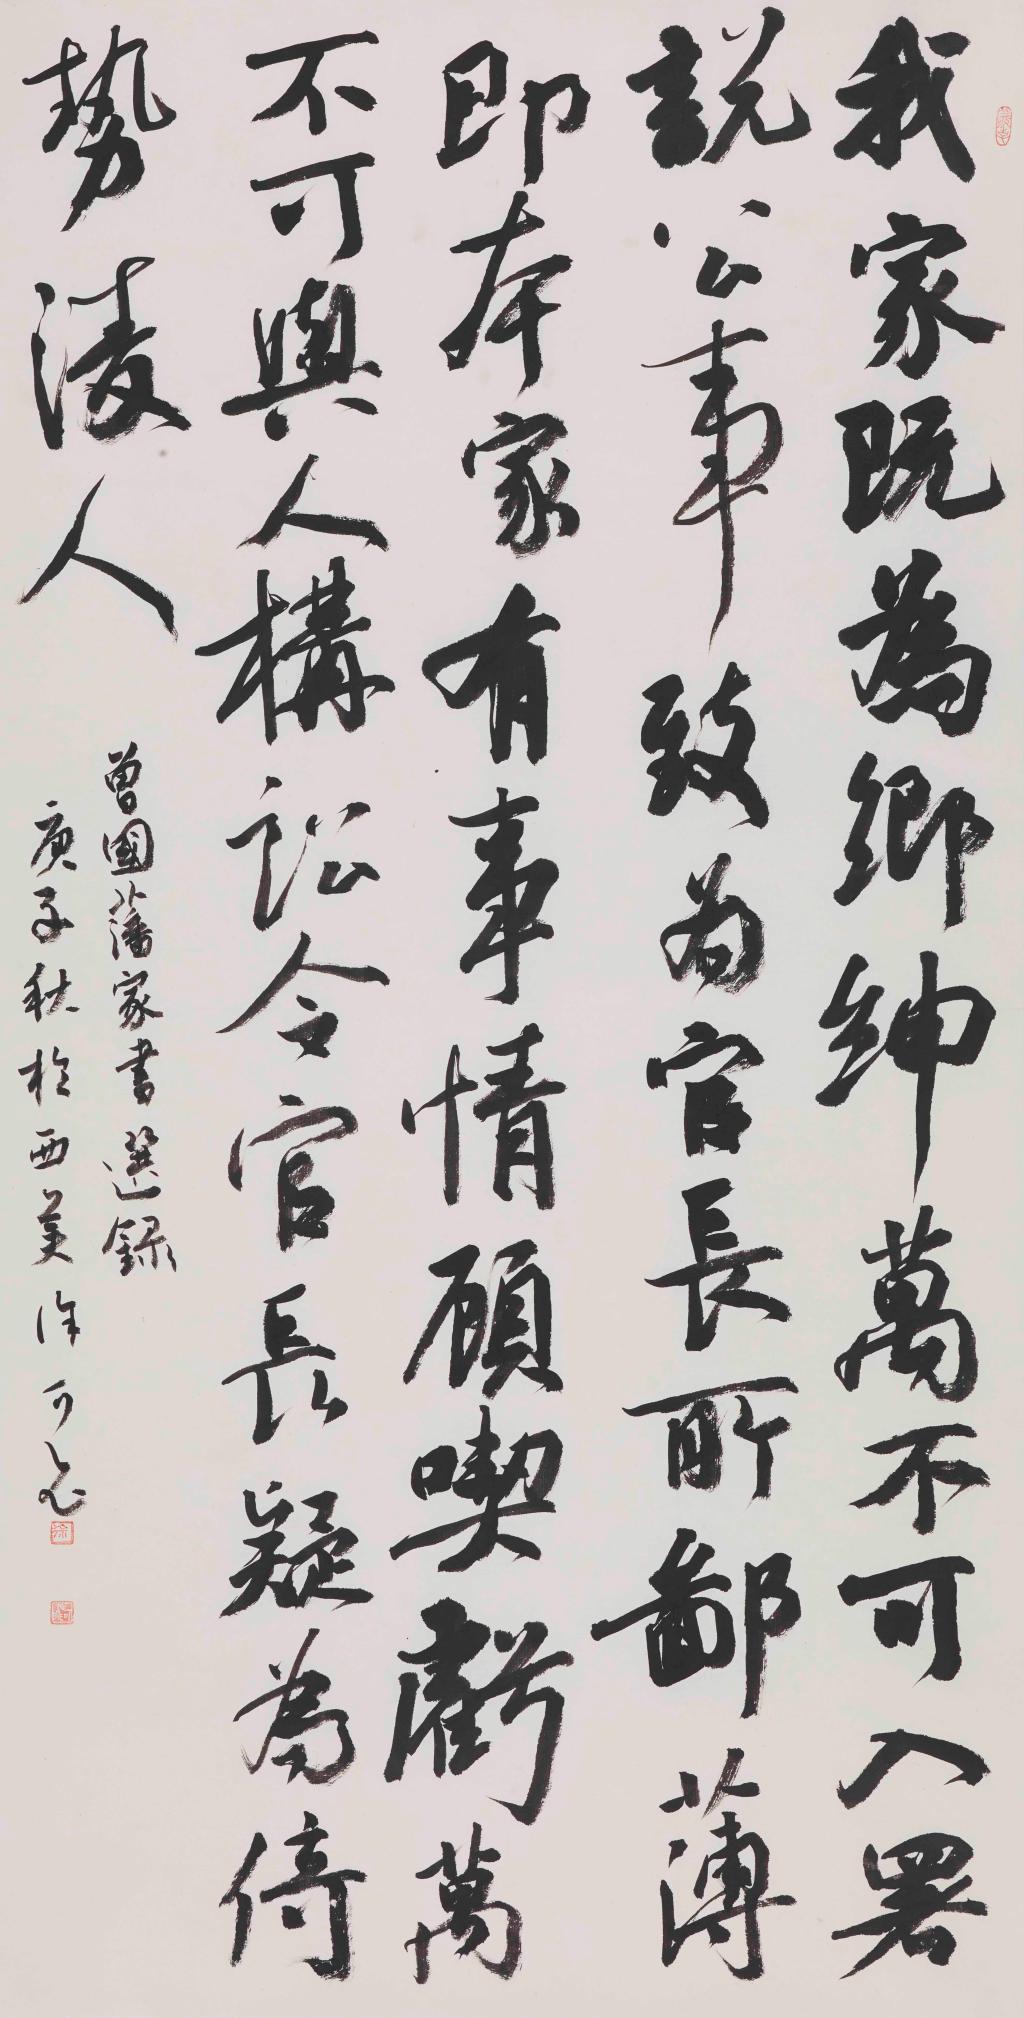 我家既為鄉紳萬不可入署
說公事致為官長所鄙薄
即本家有事情願喫虧萬
不可與人構訟令官長疑為倚
勢淩人
曾國藩家書選錄
庚子秋於西美徐可